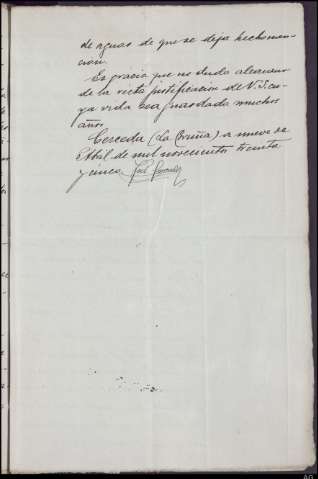 de aguas de que se deja hecho men-
ción.
Es gracia que no dudo alcanzar
de la recta justificación de V. S. cu-
ya vida sea guardada muchos
años.
Cerceda (La Coruña) a nueve de
Abril de mil novecientos treinta
y cinco.